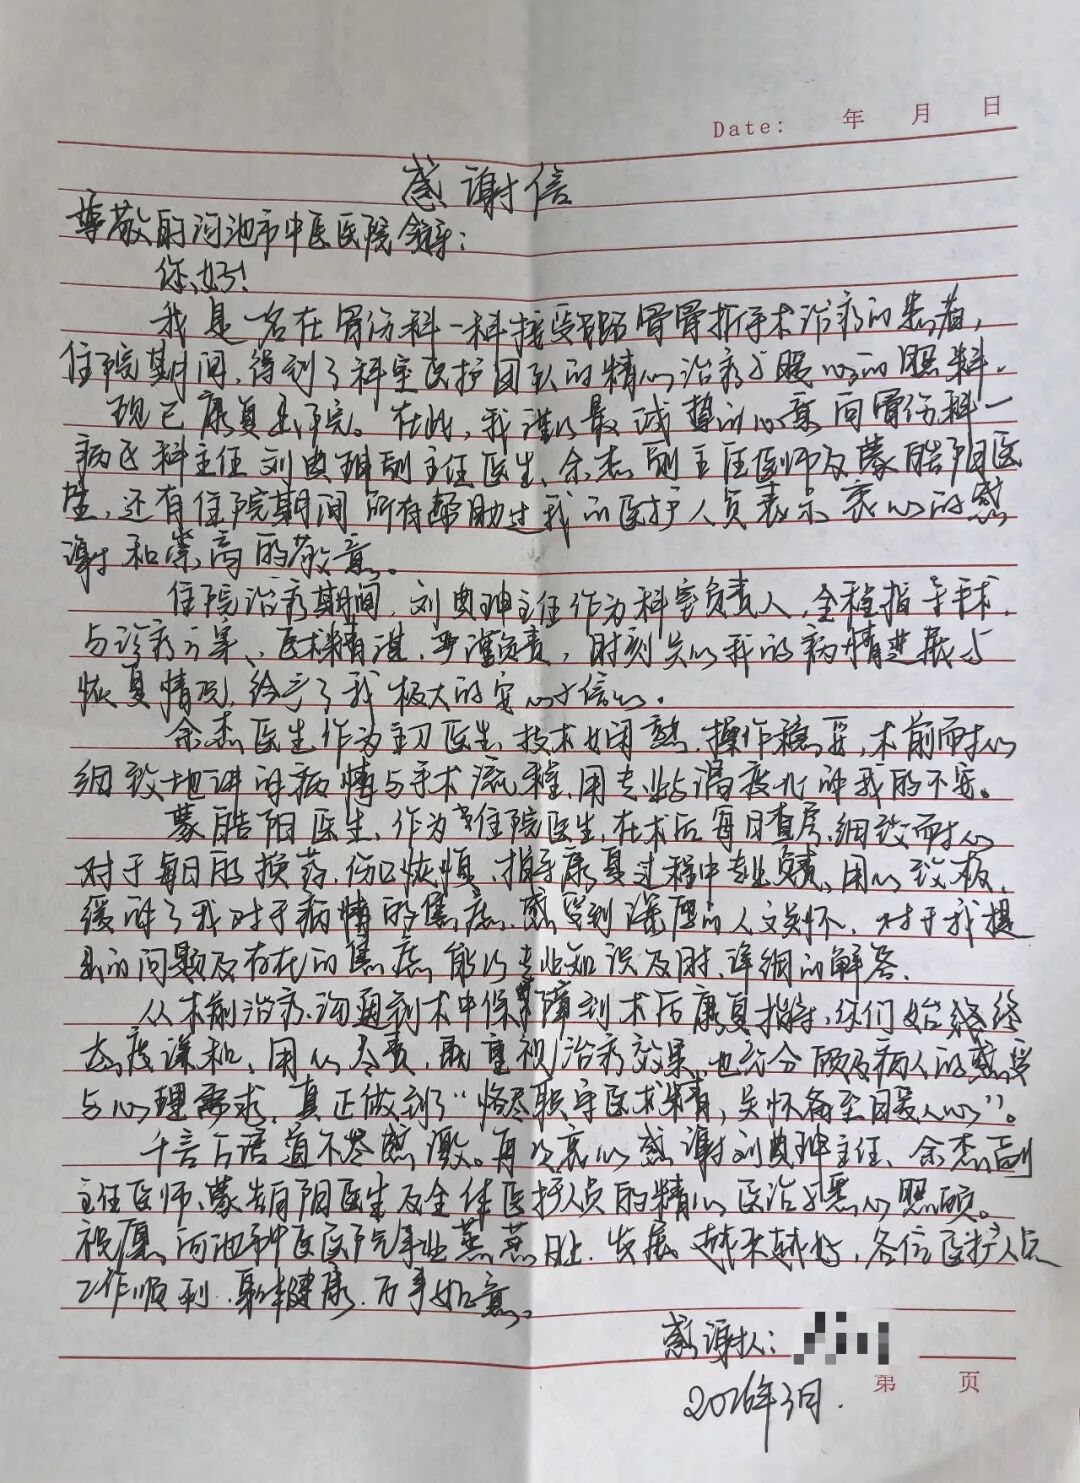 Date: 年 月 日
感谢信
尊敬的河池市中医医院领导：
你好！
我是一名在骨伤科一科接受骨折手术治疗的患者，
住院期间，得到了科室医护团队的精心治疗与暖心的照料。
现已康复出院。在此，我谨以最诚挚的心意向骨伤科一
病区科主任刘典珅副主任医生、余杰副主任医师及蒙皓阳医
生，还有住院期间所有帮助过我的医护人员表示衷心的感
谢和崇高的敬意。
住院治疗期间，刘典珅主任作为科室负责人，全程指导手术
与诊疗方案、医术精湛，严谨负责，时刻关心我的病情进展与
恢复情况，给予了我极大的安心与信心。
余杰医生作为主刀医生，技术娴熟，操作稳妥，术前耐心
细致地讲解病情与手术流程，用专业与温度化解我的不安。
蒙皓阳医生，作为住院医生，在术后每日查房，细致耐心
对于每日的换药，伤口恢复，指导康复过程中专业负责，用心
缓解了我对于病情的焦虑，感受到深厚的人文关怀，对于我提
出的问题及存在的焦虑能以专业知识及时、详细的解答。
从术前治疗沟通到术中保障到术后康复指导，你们始终
态度谦和、用心尽责，既重视治疗效果，也充分顾及病人的感受
与心理需求，真正做到了“恪尽职守医术精，关怀备至暖人心”。
千言万语道不尽感激。再次衷心感谢刘典珅主任、余杰副
主任医师、蒙皓阳医生及全体医护人员的精心医治与悉心照顾。
祝愿河池市中医医院事业蒸蒸日上，发展越来越好，各位医护人员
工作顺利，身体健康，万事如意。
感谢人：
第 页
2026年3月．